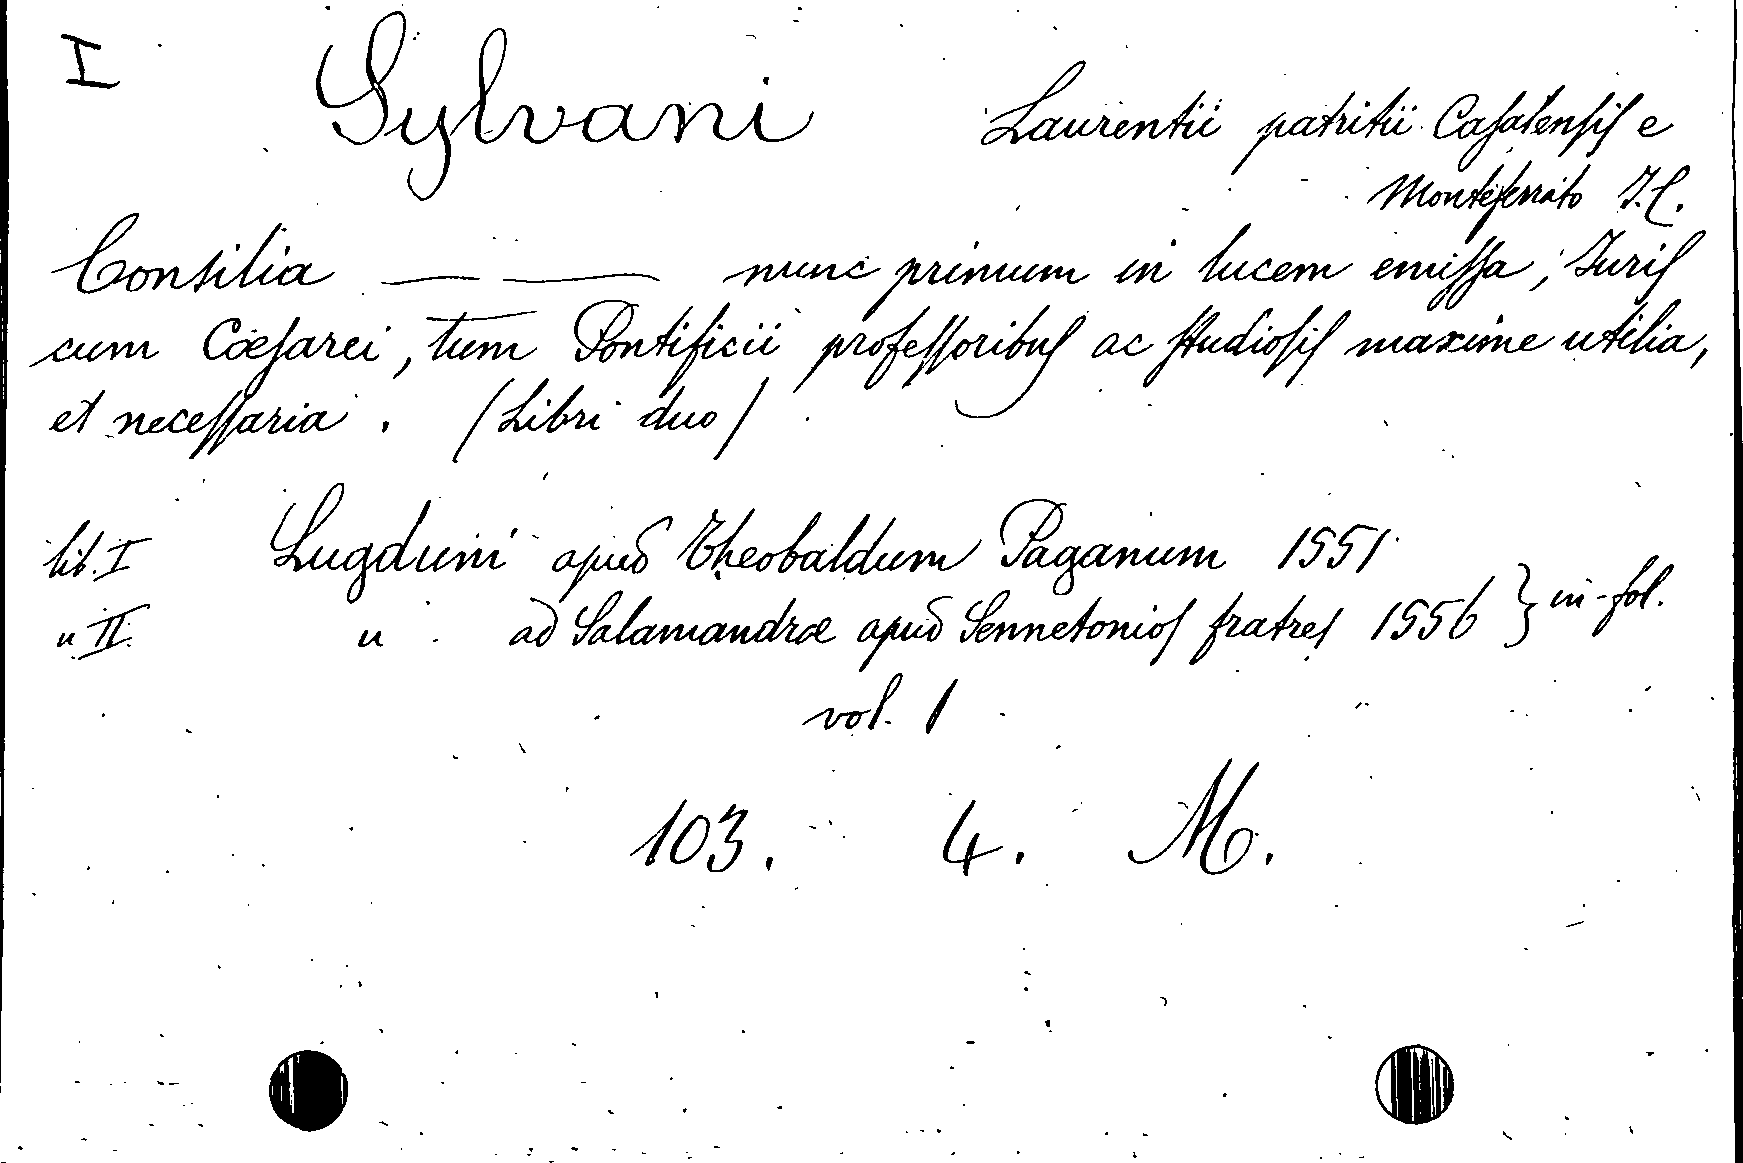 I Sylvani Laurentii patritii Casalensis e
Monteferrato I.C.
Consilia — — nunc primum in lucem emissa, Iuris
cum Cæsarei, tum Pontificii professoribus ac studiosis maxime utilia,
et necessaria. (Libri duo)
lib. I Lugduni apud Theobaldum Paganum 1551
" II. " ad Salamandræ apud Sennetonios fratres 1556 } in-fol.
vol. 1
103. 4. M.